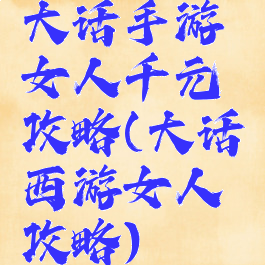 大话手游
女人千元
攻略(大话
西游女人
攻略)